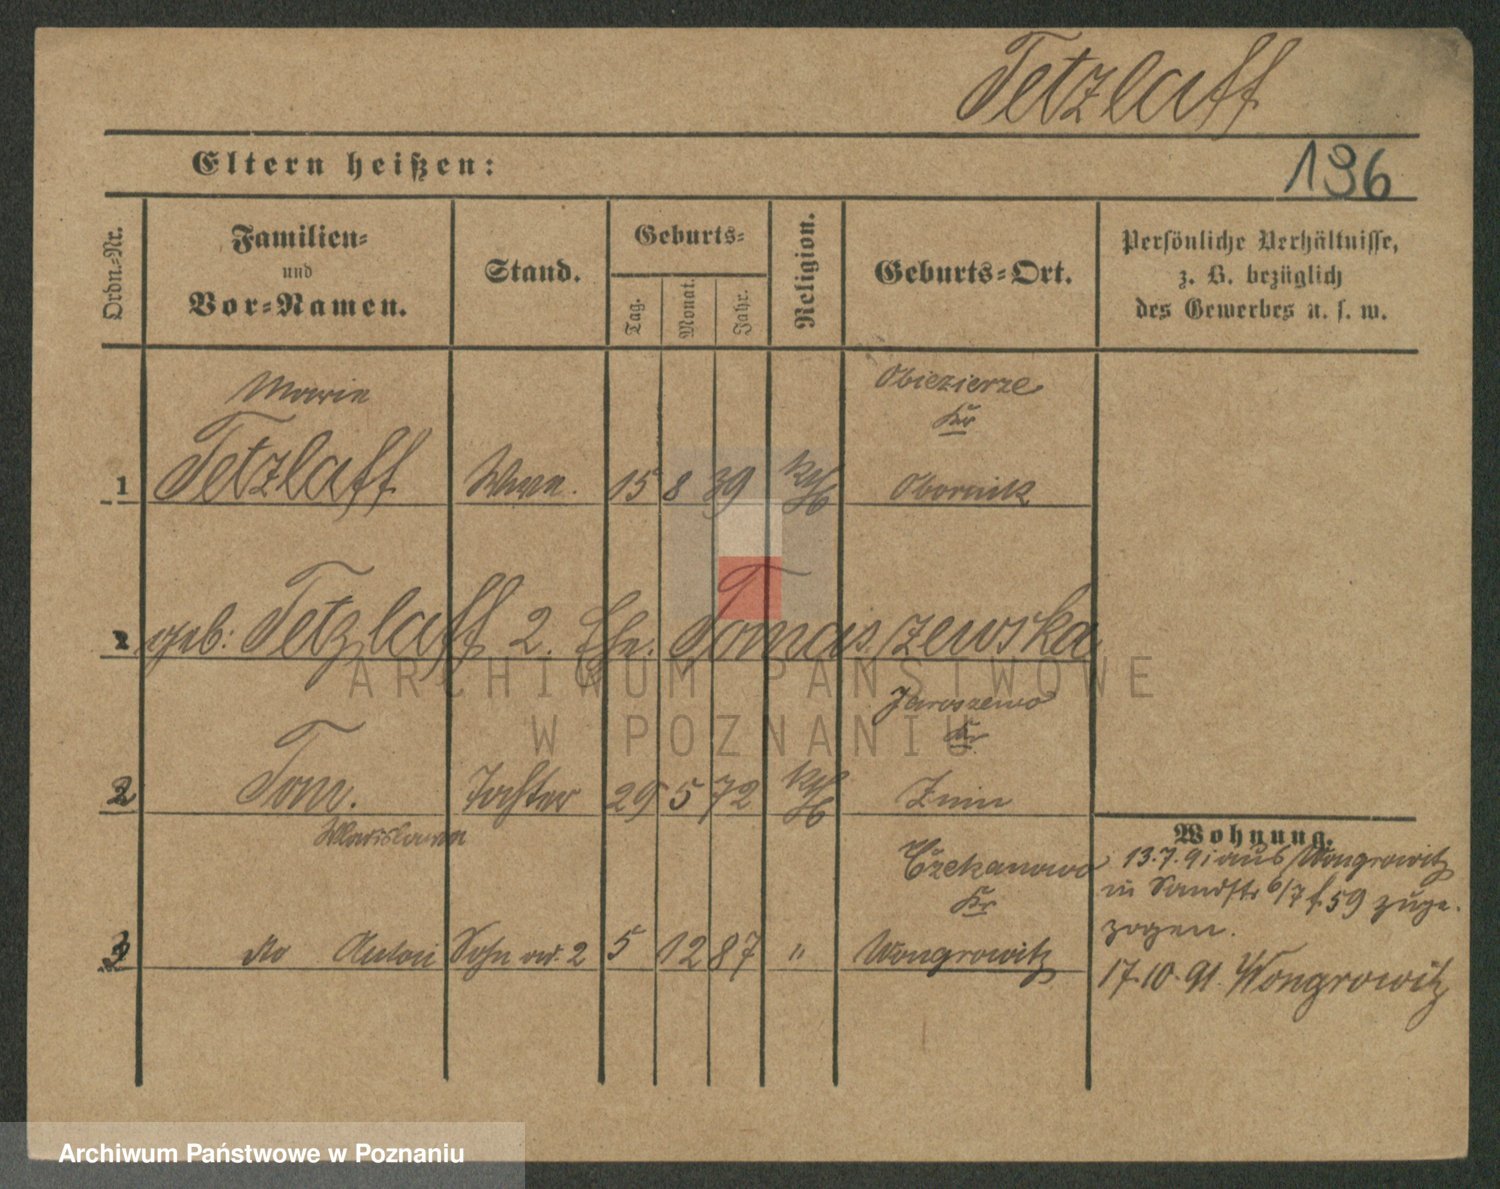 Tetzlaff
Eltern heißen:
196
Ordn.-Nr.
Familien-
und
Vor-Namen.
Stand.
Geburts-
Tag.
Monat.
Jahr.
Religion.
Geburts-Ort.
Persönliche Verhältnisse,
z. B. bezüglich
des Gewerbes u. s. w.
Marie
Obiezierze
Kr
1 Tetzlaff Wwe. 15 8 39 kath Obornik
geb: Tetzlaff 2. Ehe. Tomaszewska
Jaroszewo
Kr
2 Tom. Tochter 29 5 72 kath Znin
Wladislawa
Czekanowo
Kr
3 dto Antoni Sohn ad. 2 5 12 87 " Wongrowitz
Wohnung.
13.7.91 aus Wongrowitz
in Sandstr 6/7 f. 59 zuge-
zogen.
17.10.91. Wongrowitz
ARCHIWUM PAŃSTWOWE
W POZNANIU
Archiwum Państwowe w Poznaniu